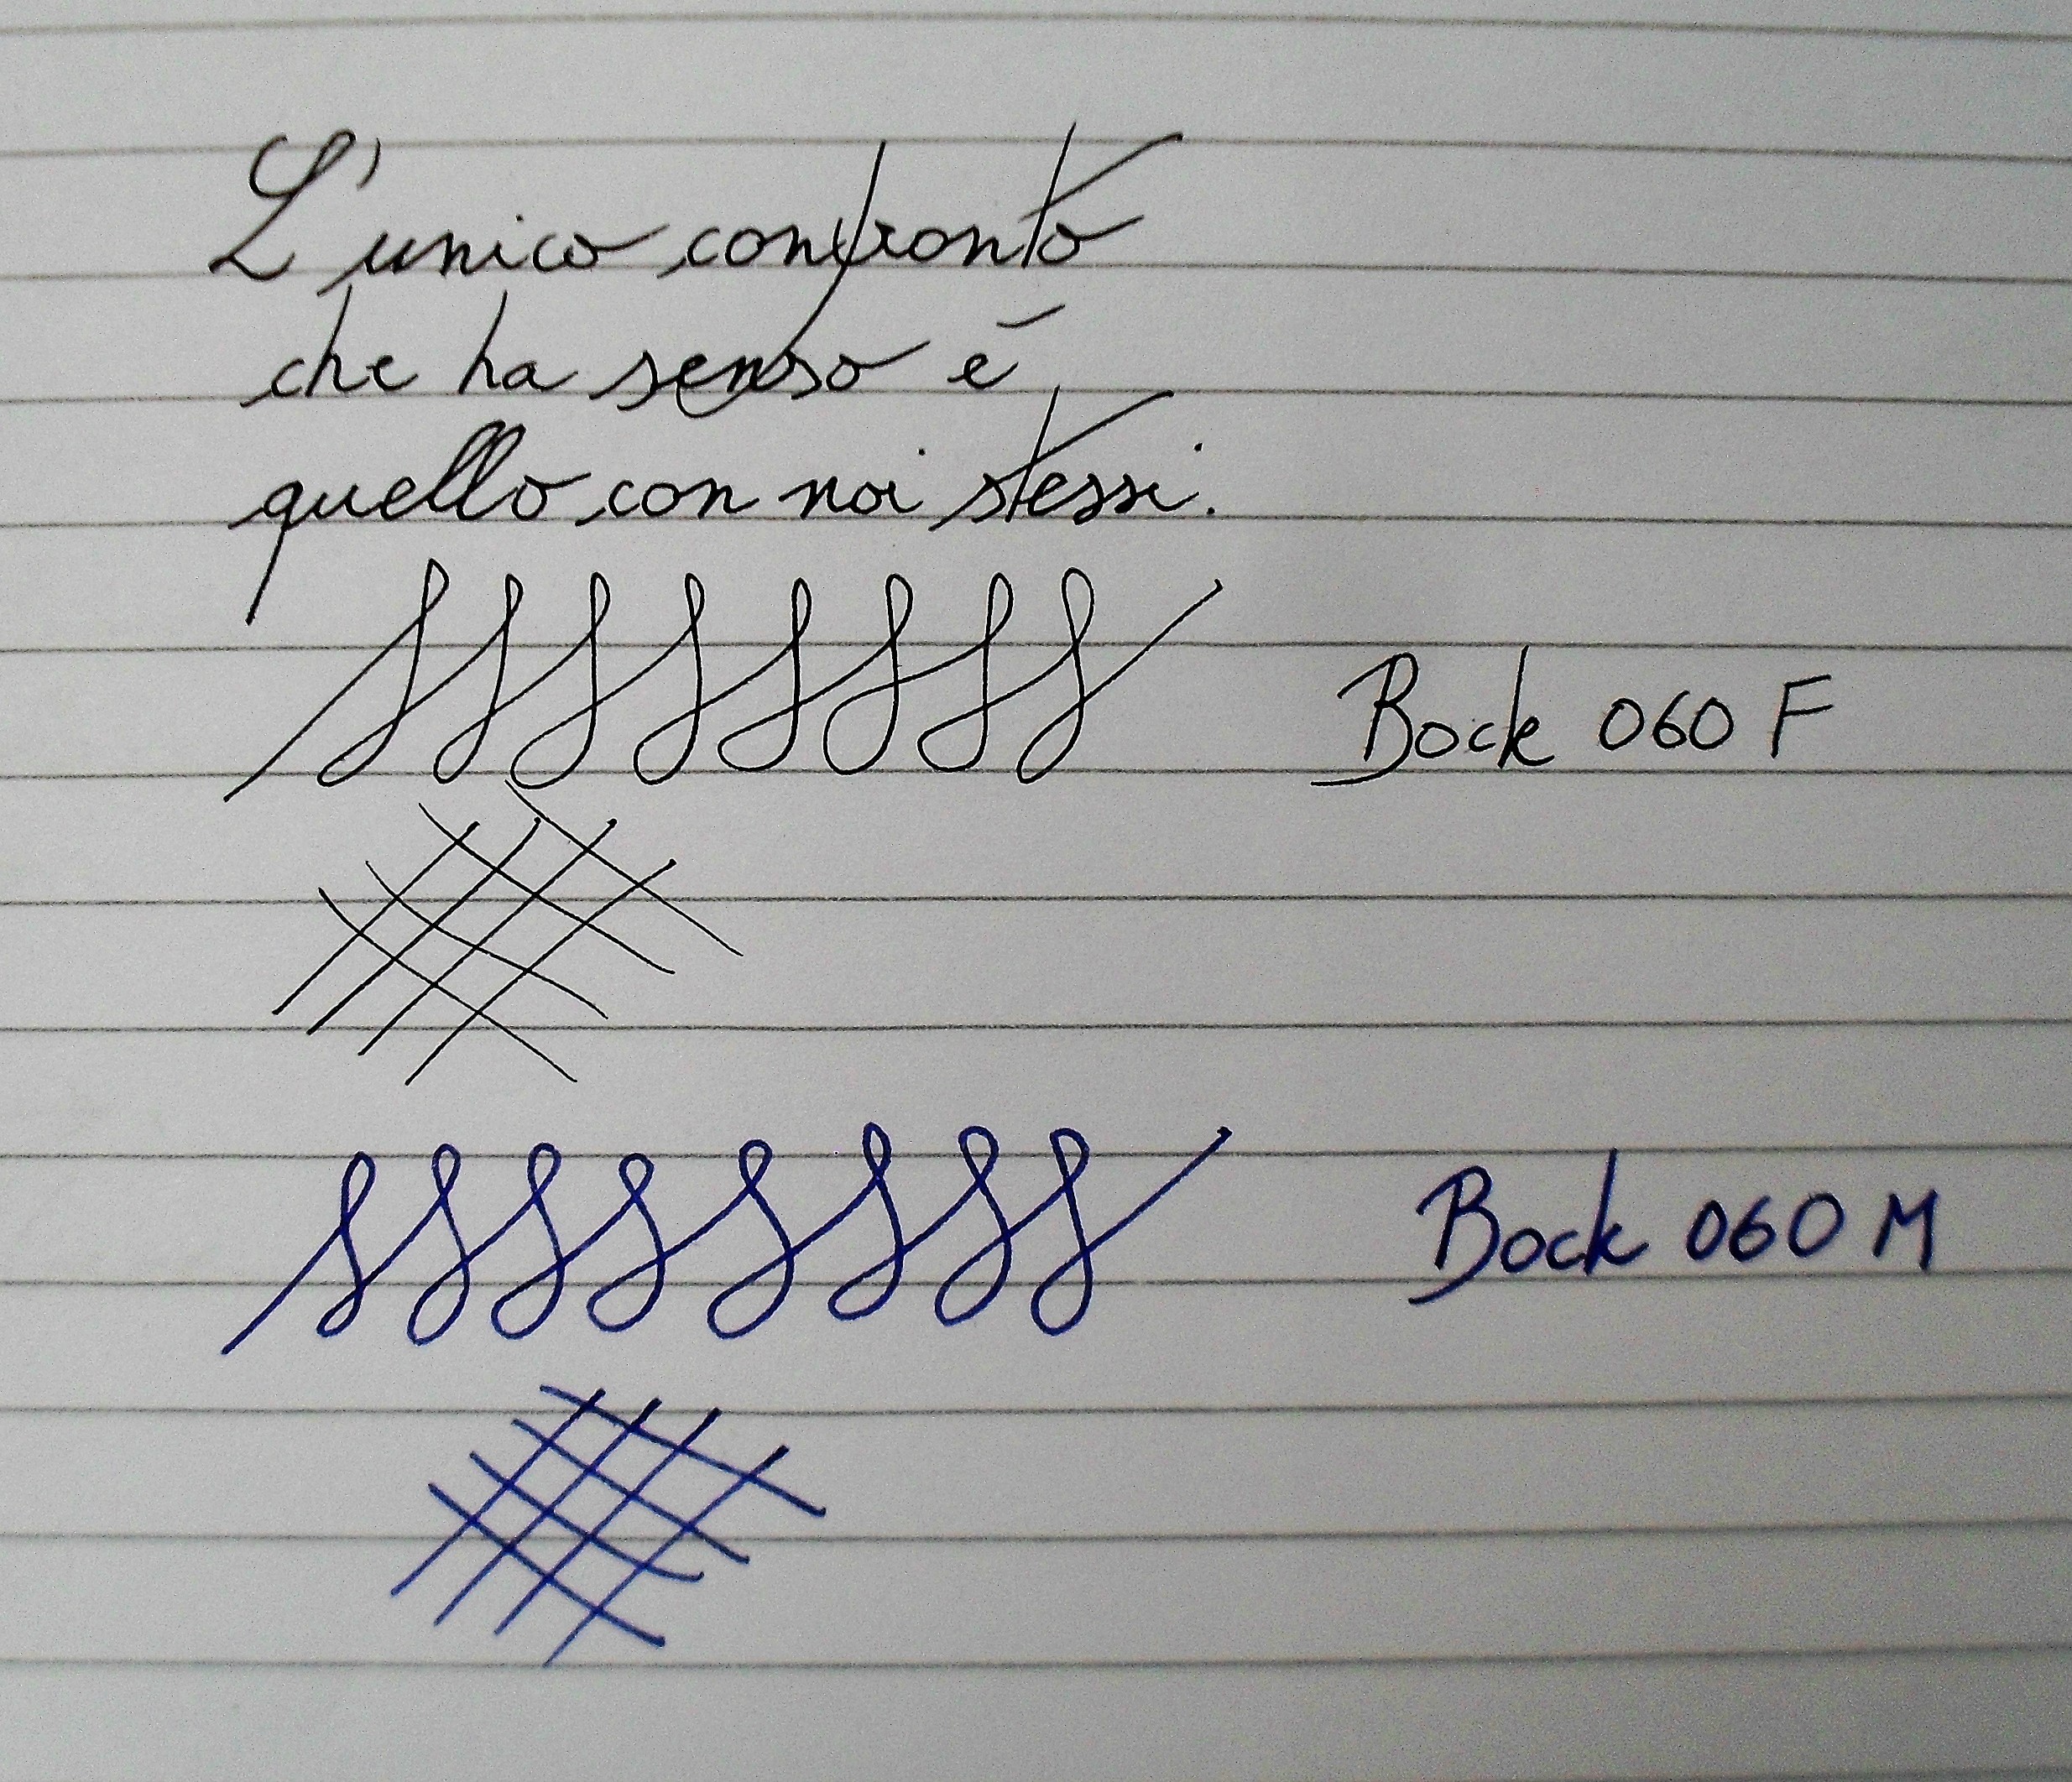 L'unico confronto
che ha senso è
quello con noi stessi.
Bock 060 F
Bock 060 M